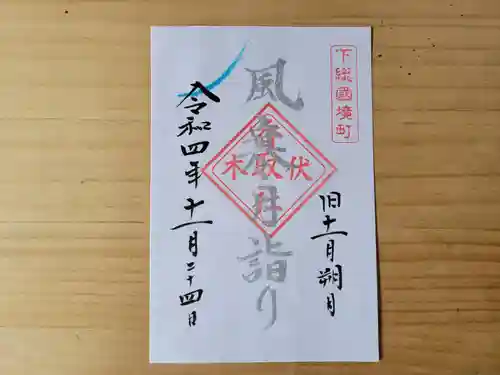 下総國境町
風寒月詣り
伏取木
旧十一月朔月
令和四年十一月二十四日